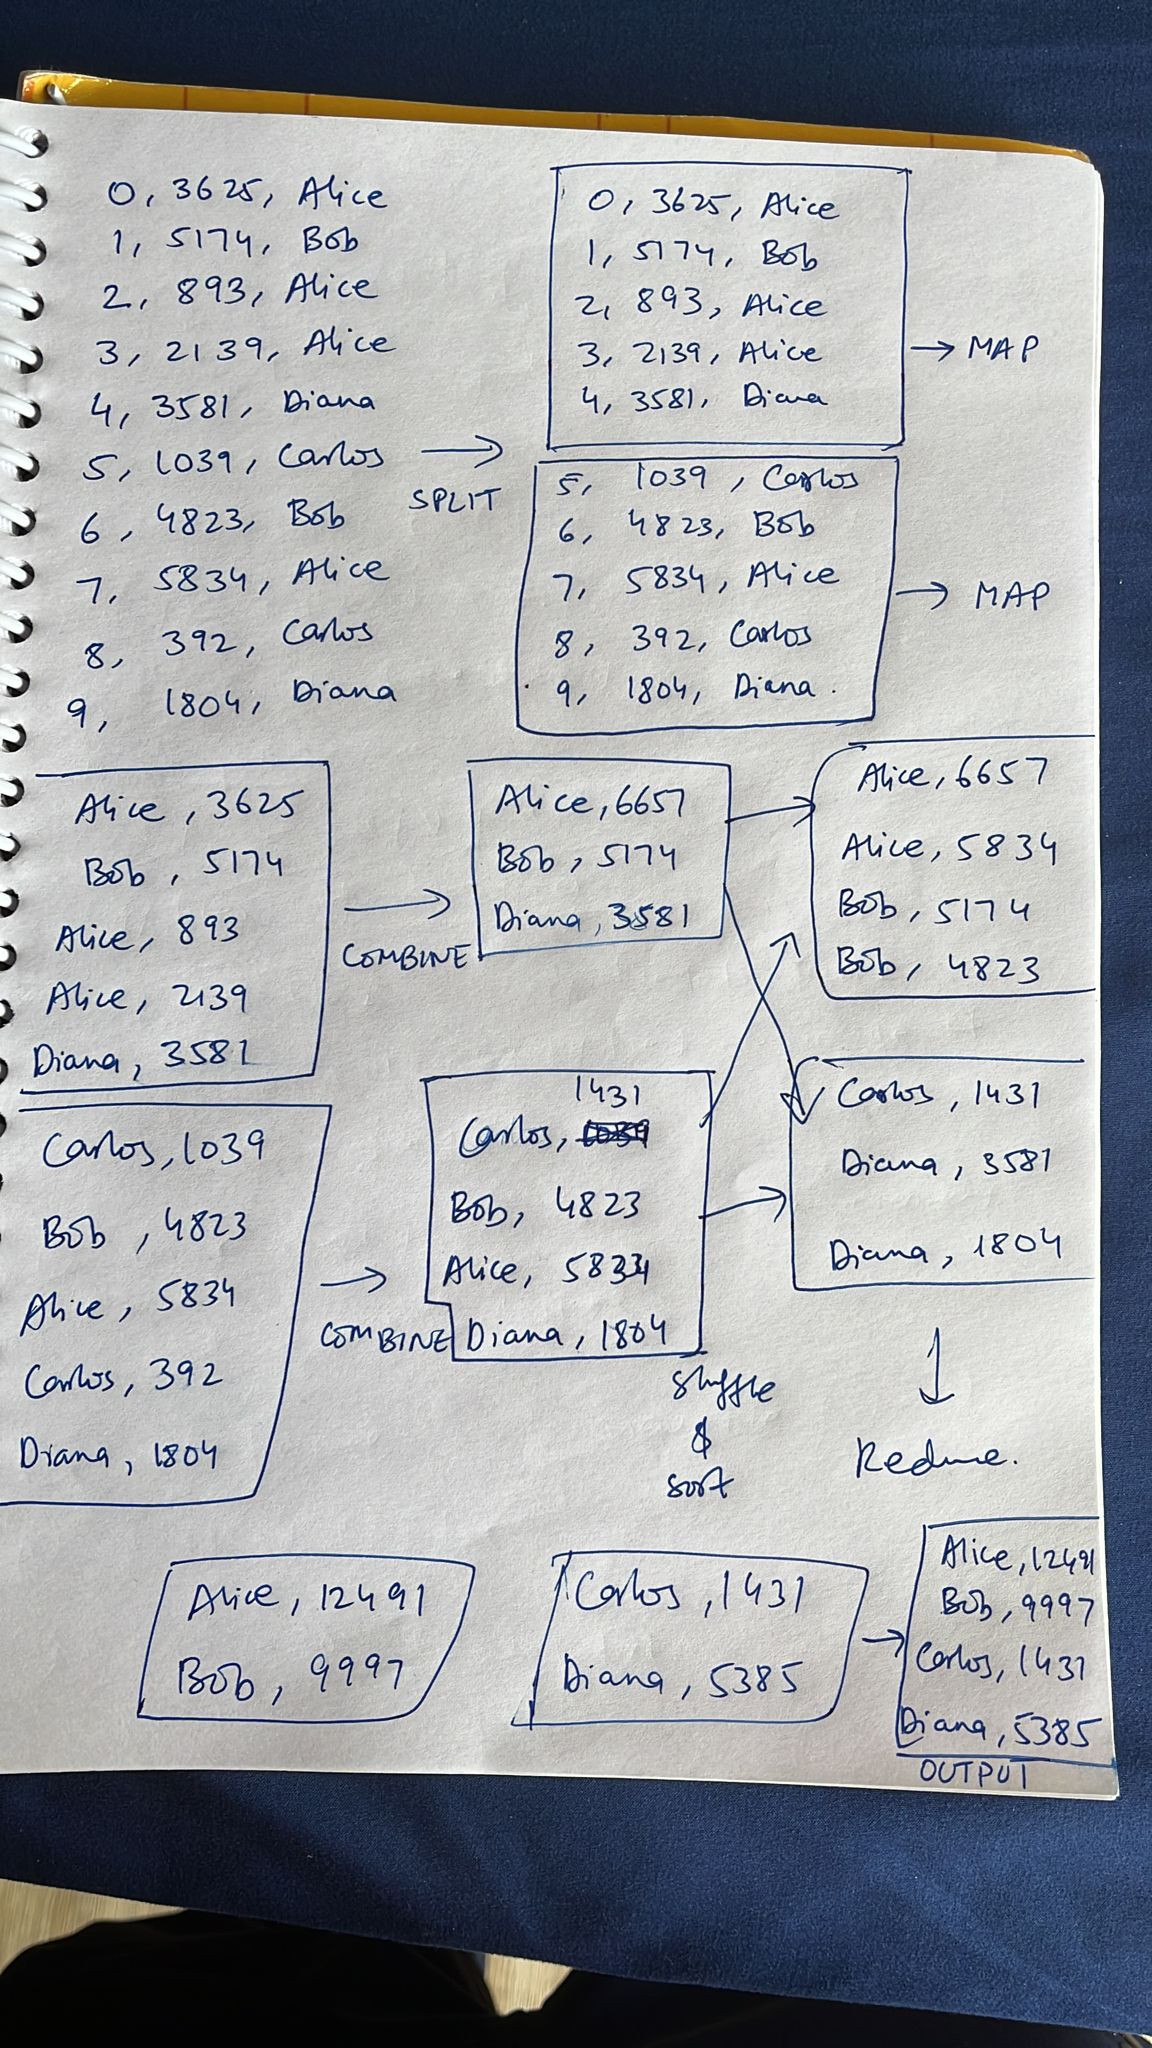 0, 3625, Alice
1, 5174, Bob
2, 893, Alice
3, 2139, Alice
4, 3581, Diana
5, 1039, Carlos
6, 4823, Bob
7, 5834, Alice
8, 392, Carlos
9, 1804, Diana
→ SPLIT
0, 3625, Alice
1, 5174, Bob
2, 893, Alice
3, 2139, Alice
4, 3581, Diana
→ MAP
5, 1039, Carlos
6, 4823, Bob
7, 5834, Alice
8, 392, Carlos
9, 1804, Diana.
→ MAP
Alice, 3625
Bob, 5174
Alice, 893
Alice, 2139
Diana, 3581
→ COMBINE
Alice, 6657
Bob, 5174
Diana, 3581
Carlos, 1039
Bob, 4823
Alice, 5834
Carlos, 392
Diana, 1804
→ COMBINE
1431
Carlos,
Bob, 4823
Alice, 5834
Diana, 1804
Shuffle
&
sort
Alice, 6657
Alice, 5834
Bob, 5174
Bob, 4823
Carlos, 1431
Diana, 3581
Diana, 1804
↓
Reduce.
Alice, 12491
Bob, 9997
Carlos, 1431
Diana, 5385
→
Alice, 12491
Bob, 9997
Carlos, 1431
Diana, 5385
OUTPUT